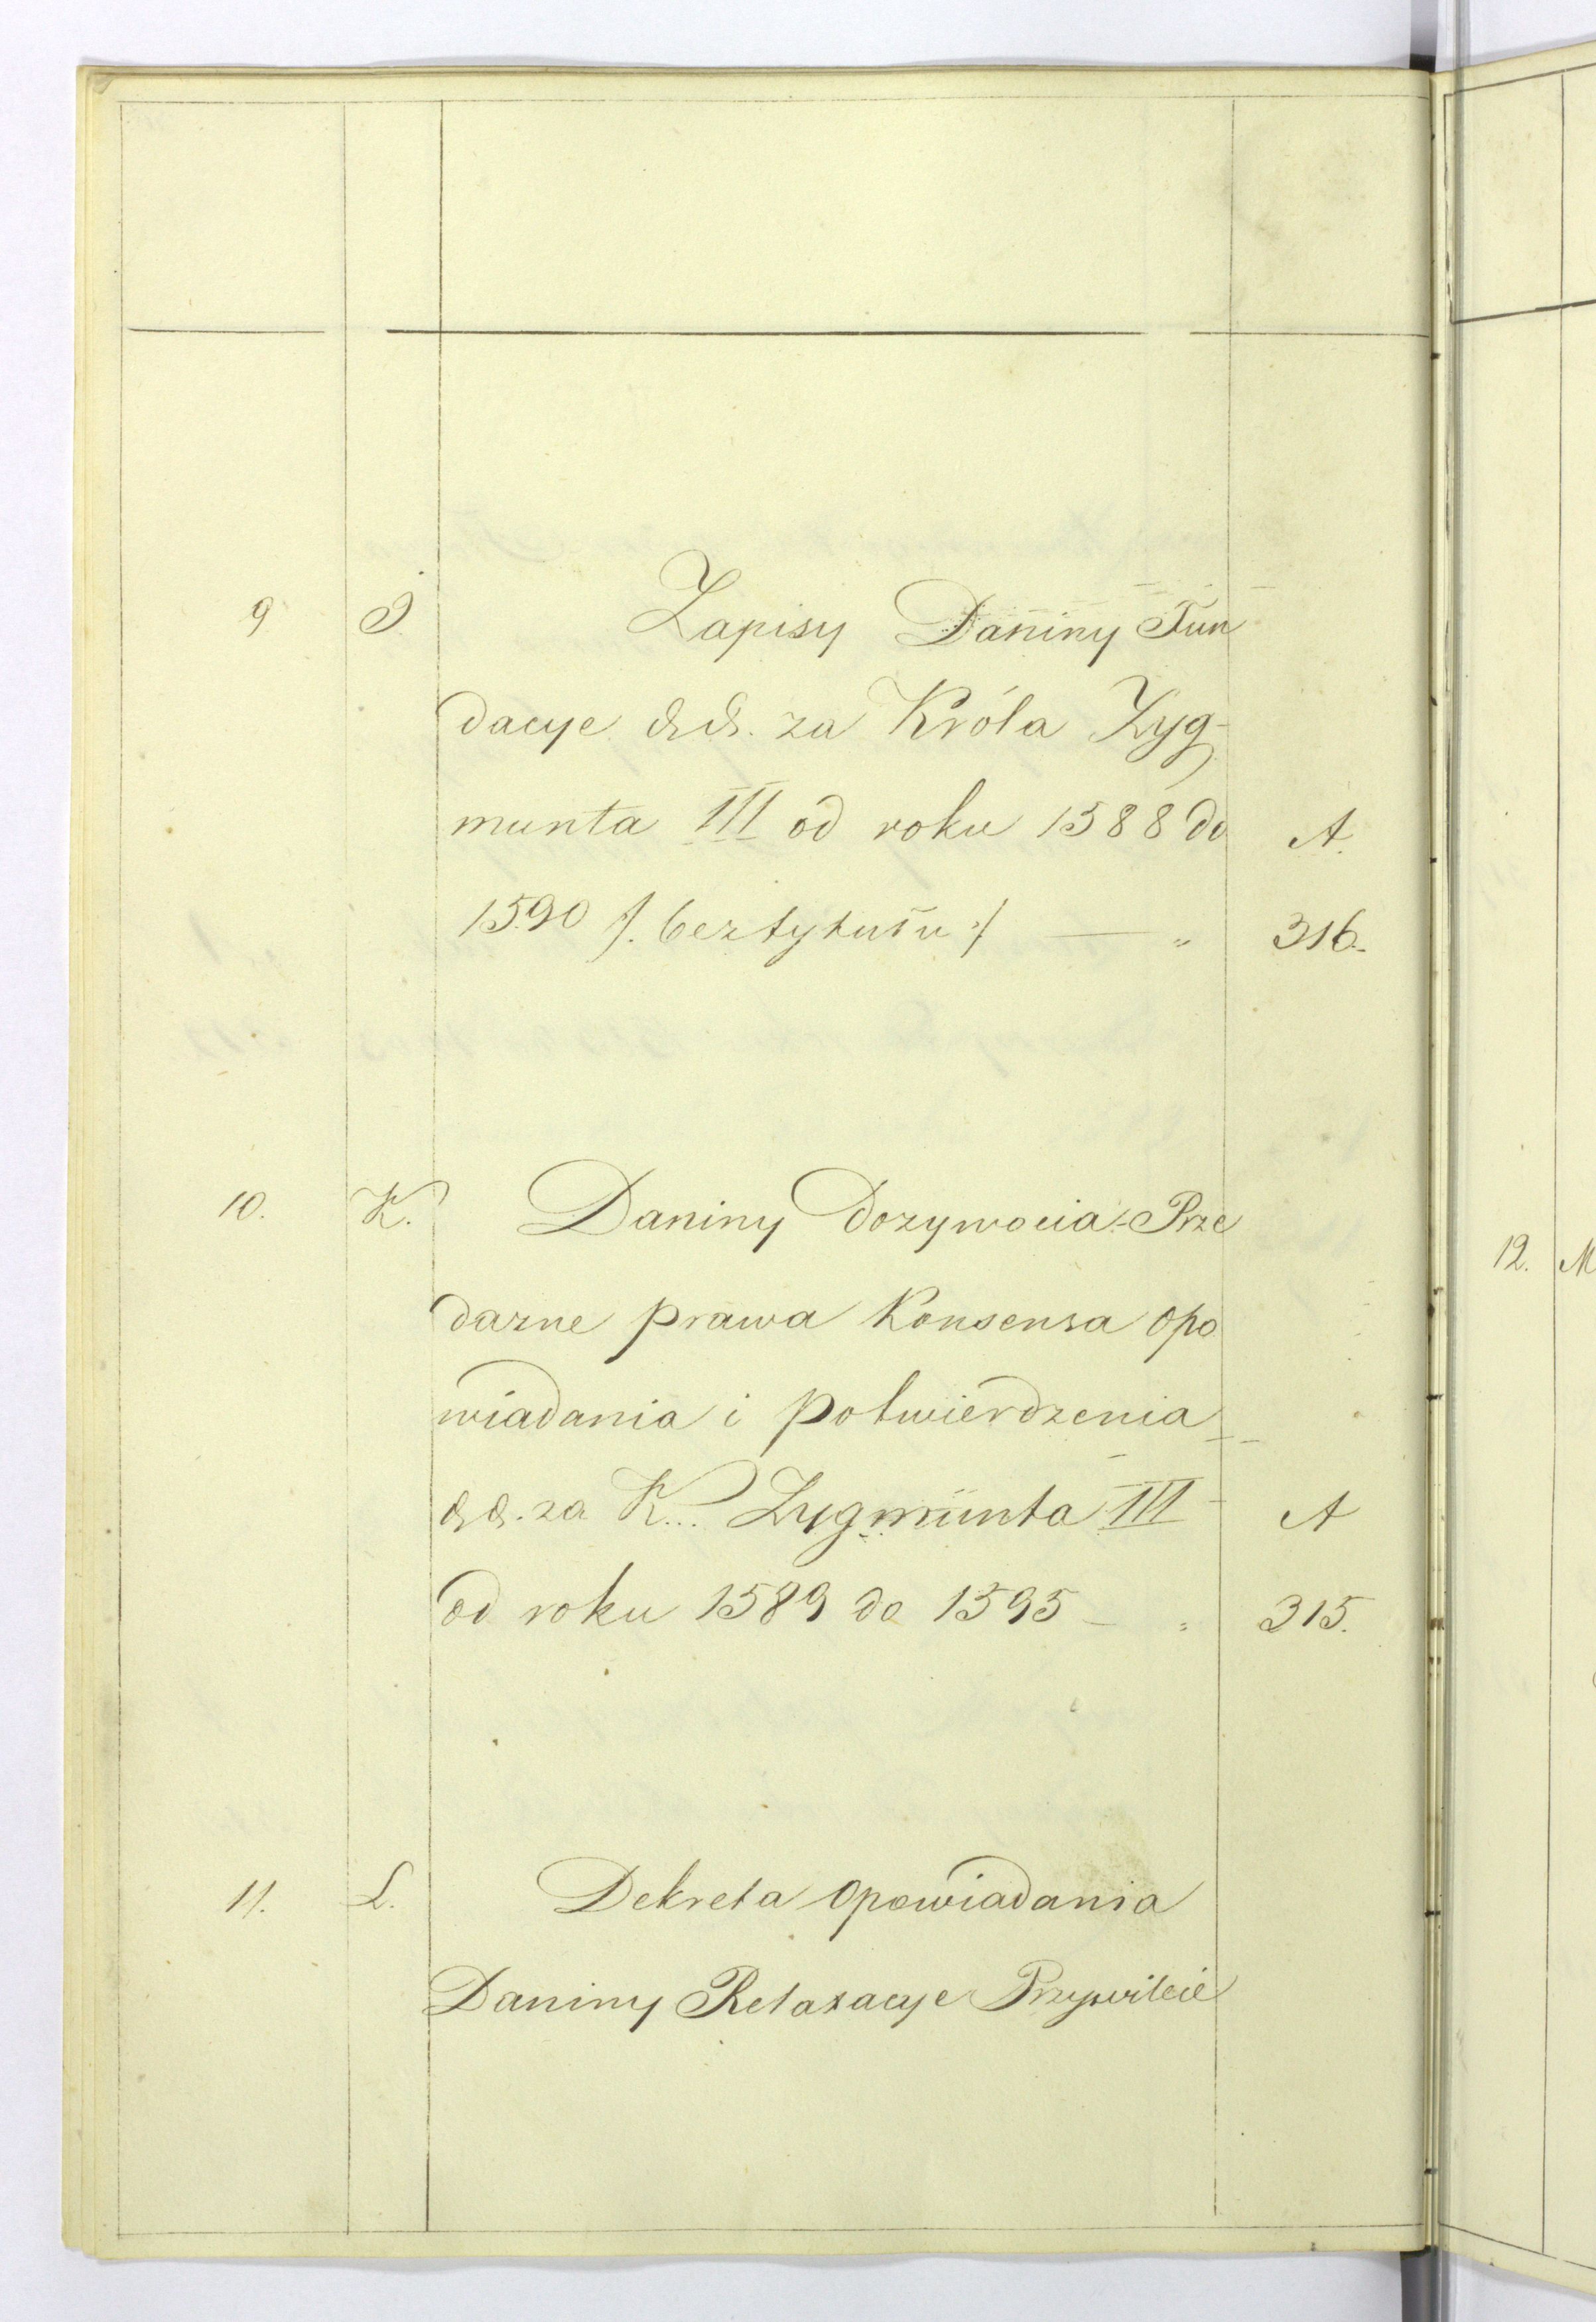 9 J. Zapisy Daniny Fun
dacye &.&. za Króla Zyg-
munta III od roku 1588 do A.
1590 /. bez tytułu ./ — „ 316.
10. K. Daniny Dozywocia Prze
dazne prawa Konsensa opo
wiadania i potwierdzenia
&.&. za K... Zygmunta III A
od roku 1589 do 1595 — „ 315.
11. L. Dekreta Opowiadania
Daniny Relaxacye Przywileie
12. M